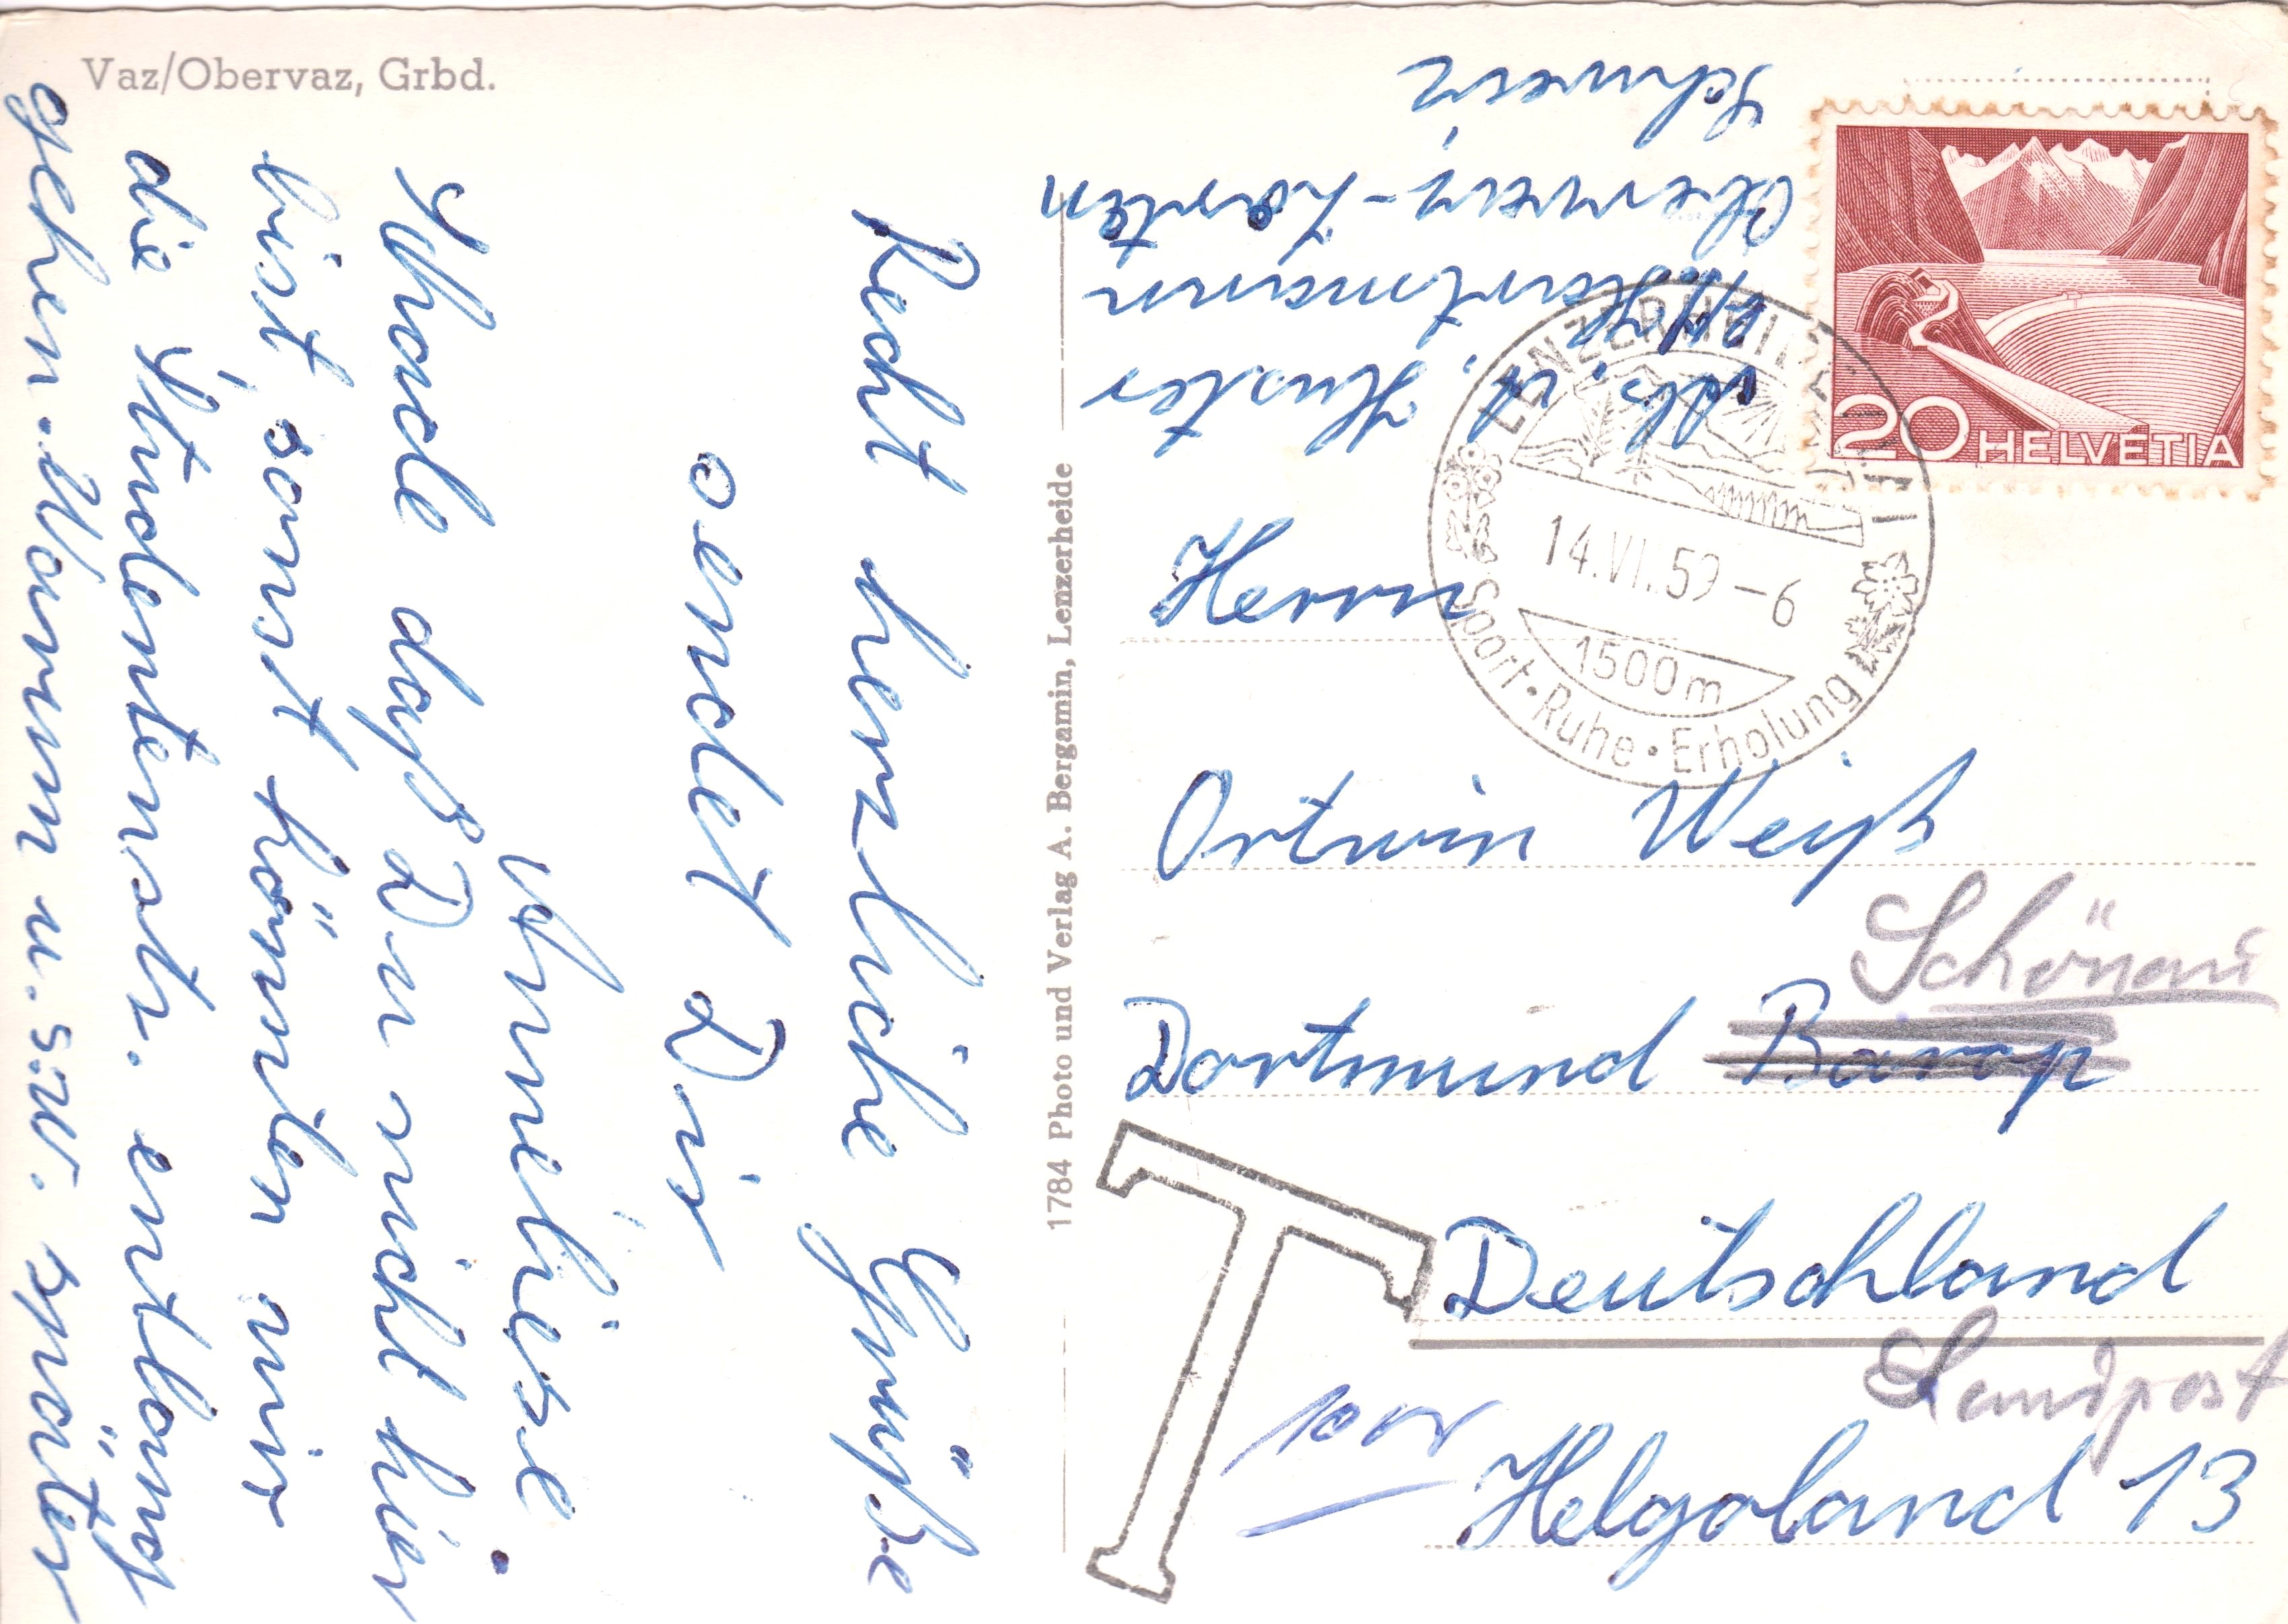 Vaz/Obervaz, Grbd.
Recht herzliche Grüße
sendet Dir
Anneliese
Schade daß Du nicht hier
bist, sonst könnten wir
die Studentenstr. entlang
gehen. Warum u.s.w. später
1784 Photo und Verlag A. Bergamin, Lenzerheide
Abs. A. Huster
Hartmann
Schweiz
20 HELVETIA
LENZERHEIDE
14.VI.59–6
1500 m
Sport · Ruhe · Erholung
Herrn
Ortwin Weiß
Schönau
Dortmund Barop
T
Deutschland
Landpost
Helgoland 13